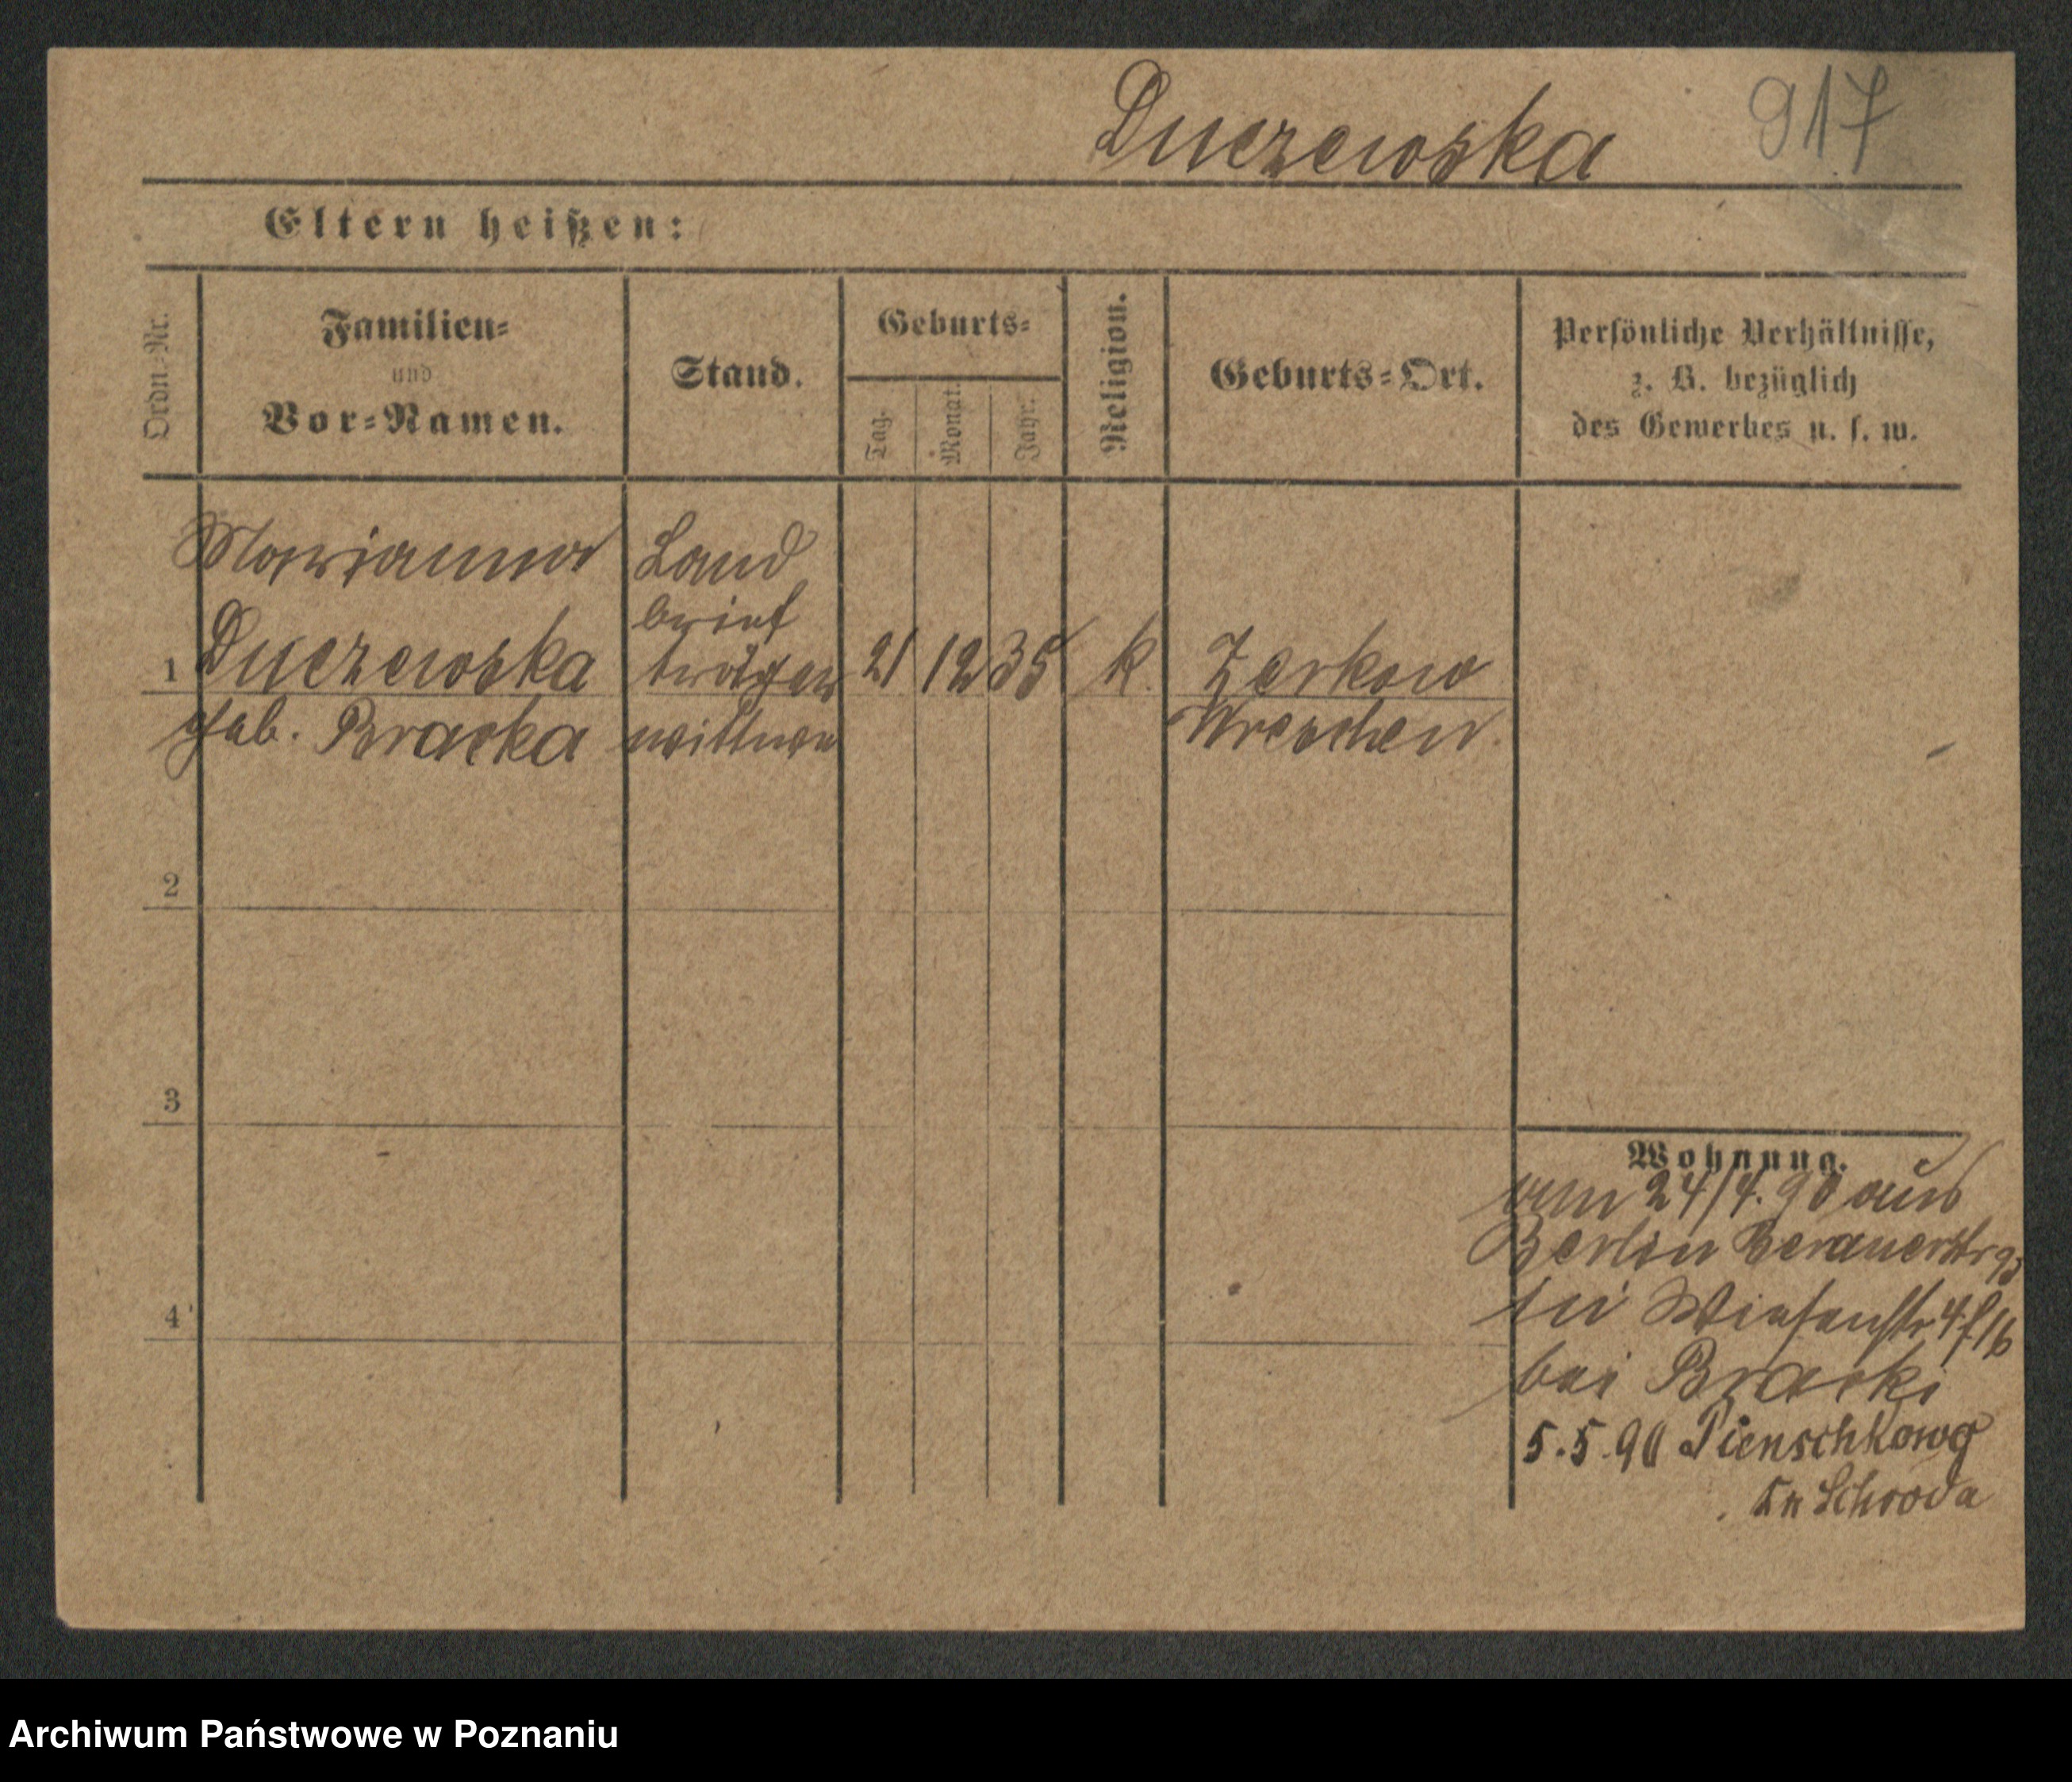 Duczewska 917
Eltern heißen:
Ordn.-Nr.
Familien-
und
Vor-Namen.
Stand.
Geburts-
Tag.
Monat.
Jahr.
Religion.
Geburts-Ort.
Persönliche Verhältnisse,
z. B. bezüglich
des Gewerbes u. s. w.
Marianna
Duczewska
geb. Bracka
Land
brief
träger
wittwe
1
21 12 35 k. Zerkow
Wreschen.
2
3
4
Wohnung.
am 24/4. 90 aus
Berlin
Wiesenstr 4
bei Bracki
5.5.90 Pienschkowo
Kr Schroda
Archiwum Państwowe w Poznaniu